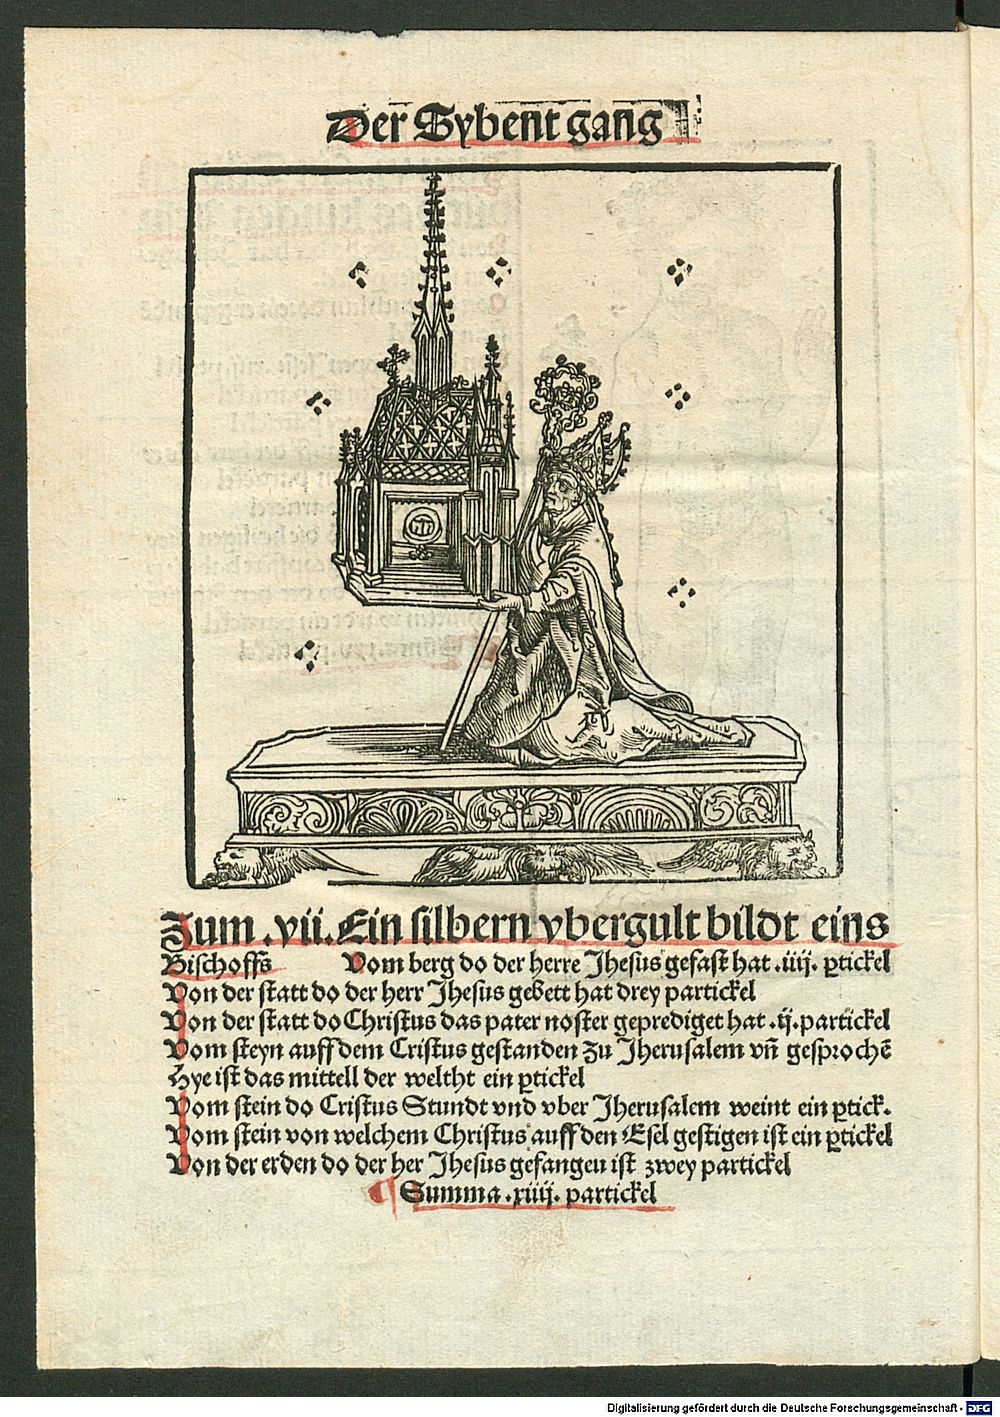 Der Sybent gang
Zum .vii. Ein silbern vbergult bildt eins
Bischoffs Vom berg do der herre Jhesus gefast hat .iiij. ꝑtickel
Von der statt do der herr Jhesus gebett hat drey partickel
Von der statt do Christus das pater noster geprediget hat .ij. partickel
Vom steyn auff dem Cristus gestanden zu Jherusalem vn̄ gesprochē
Hye ist das mittell der weltht ein ꝑtickel
Vom stein do Cristus Stundt vnd vber Jherusalem weint ein ꝑtick.
Vom stein von welchem Christus auff den Esel gestigen ist ein ꝑtickel
Von der erden do der her Jhesus gefangen ist zwey partickel
¶ Summa .xiiij. partickel
Digitalisierung gefördert durch die Deutsche Forschungsgemeinschaft - DFG